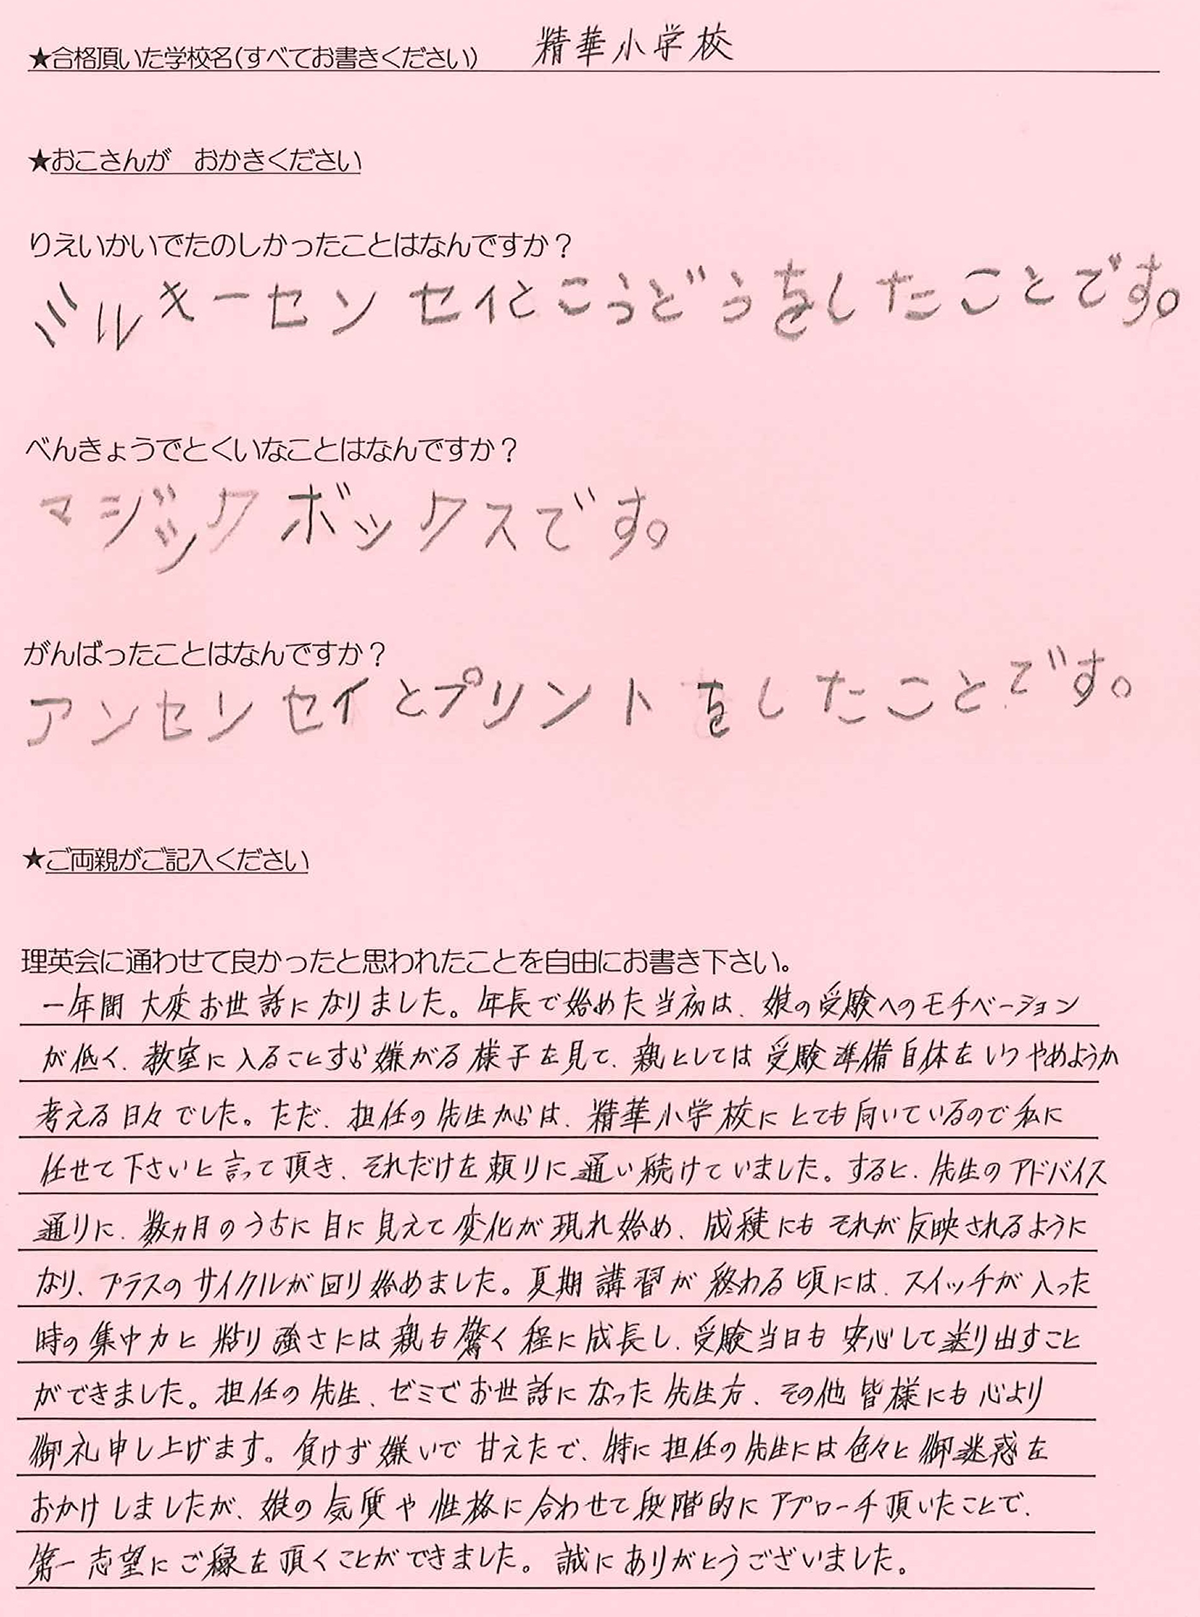 ★合格頂いた学校名(すべてお書きください) 精華小学校
★おこさんが おかきください
りえいかいでたのしかったことはなんですか？
ミルキーセンセイとこうどうをしたことです。
べんきょうでとくいなことはなんですか？
マジックボックスです。
がんばったことはなんですか？
アンセンセイとプリントをしたことです。
★ご両親がご記入ください
理英会に通わせて良かったと思われたことを自由にお書き下さい。
一年間大変お世話になりました。年長で始めた当初は、娘の受験へのモチベーション
が低く、教室に入ることすら嫌がる様子を見て、親としては受験準備自体をいつやめようか
考える日々でした。ただ、担任の先生からは、精華小学校にとても向いているので私に
任せて下さいと言って頂き、それだけを頼りに通い続けていました。すると、先生のアドバイス
通りに、数ヵ月のうちに目に見えて変化が現れ始め、成績にもそれが反映されるように
なり、プラスのサイクルが回り始めました。夏期講習が終わる頃には、スイッチが入った
時の集中力と粘り強さには親も驚く程に成長し、受験当日も安心して送り出すこと
ができました。担任の先生、ゼミでお世話になった先生方、その他皆様にも心より
御礼申し上げます。負けず嫌いで甘えたで、特に担任の先生には色々と御迷惑を
おかけしましたが、娘の気質や性格に合わせて段階的にアプローチ頂いたことで、
第一志望にご縁を頂くことができました。誠にありがとうございました。